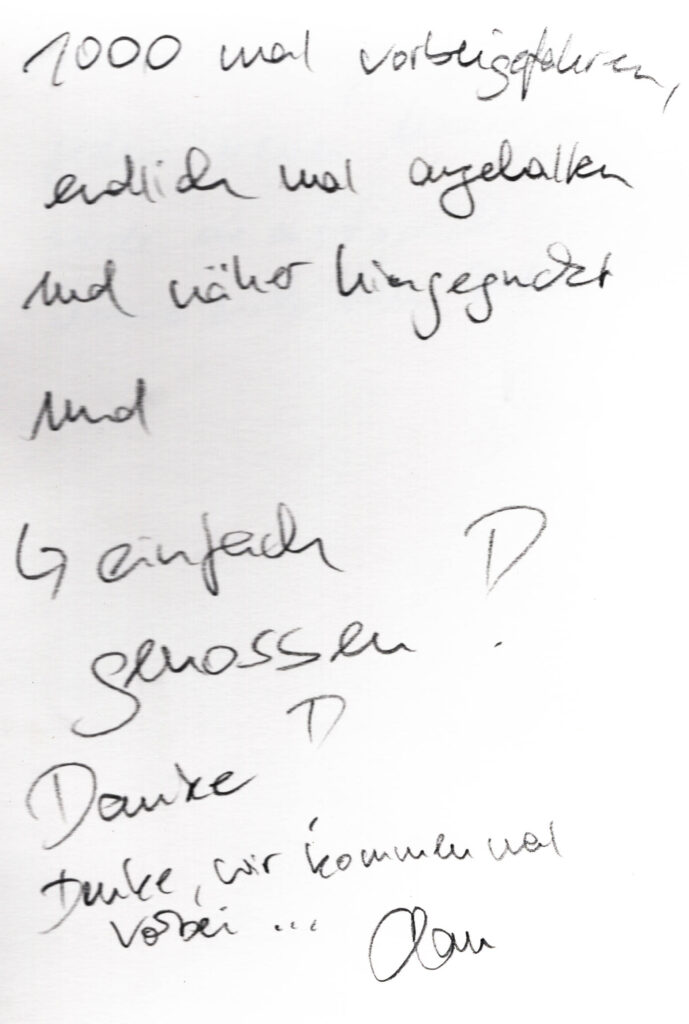 1000 mal vorbeigefahren,
endlich mal angehalten
und näher hingeguckt
und
↳ einfach
genossen!
Danke!
Danke, wir kommen mal
vorbei ...